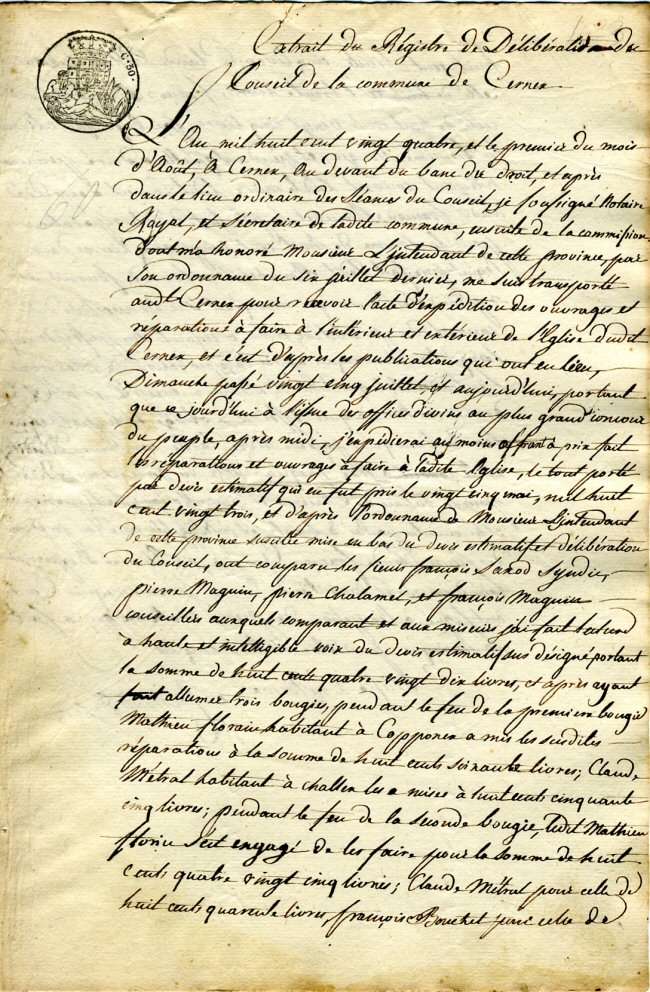 C. 50.
Extrait du Régistre de Délibération du
Conseil de la commune de Cernex
L'An mil huit cent vingt quatre, et le premier du mois
d'Août, à Cernex, au devant du banc du droit, et après
dans le lieu ordinaire des Séances du Conseil, je soussigné Notaire
Royal, et Sécretaire de ladite commune, ensuite de la commission
dont m'a honoré Monsieur L'jntendant de cette province, par
son ordonnance du six juillet dernier, me suis transporté
audt Cernex pour recevoir l'acte d'expédition des ouvrages et
réparations à faire à l'intérieur et extérieur de l'Eglise dudit
Cernex, et c'est d'après les publications qui ont eu lieu,
Dimanche passé vingt cinq juillet, et aujourd'hui, portant
que ce jourd'hui à l'issue des offices divins au plus grand concour
du peuple, après midi, j'expédierai au moins offrant à prix fait
les réparations et ouvrages à faire à ladite Eglise, le tout porté
par devis estimatif qui en fut pris le vingt cinq mai, mil huit
cent vingt trois, et d'après l'ordonnance de Monsieur L'jntendant
de cette province susdite mise en bas du devis estimatif et délibération
du Conseil, ont comparu les sieurs françois Saxod Syndic,
pierre Maguin, pierre Chalamel, et françois Maguin
conseillers auxquels comparant et aux miseurs j'ai fait lecture
à haute et intelligible voix du devis estimatif sus désigné portant
la somme de huit cents quatre vingt dix livres, et après ayant
fait allumer trois bougies, pendant le feu de la première bougie
Mathieu florin habitant à Copponex a mis les susdites
réparations à la somme de huit cents soixante livres; Claude
Métral habitant à challen les a mises à huit cents cinquante
cinq livres; pendant le feu de la seconde bougie, ledit Mathieu
florin s'est engagé de les faire pour la somme de huit
cents quatre vingt cinq livres; Claude Métral pour celle de
huit cents quarante livres, françois Bouchet pour celle de